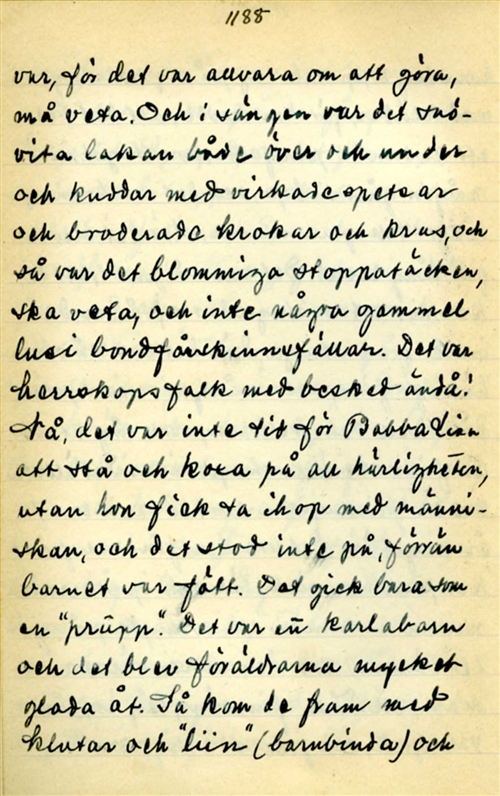 1188
var, för det var allvara om att göra,
må veta. Och i sängen var det snö-
vita lakan både över och under
och kuddar med virkade spetsar
och broderade krokar och krus, och
så var det blommiga stoppatäcken,
ska veta, och inte några gammel
lusi bondfårskinnsfällar. Det var
herrskopsfalk med besked ändå!
Nå, det var inte tid för Babba Lisa
att stå och koxa på all härligheten,
utan hon fick ta ihop med männi-
skan, och det stod inte på, förrän
barnet var fått. Det gick bara som
en "prüpp". Det var eñ karlabarn
och det blev föräldrarna mycket
glada åt. Så kom de fram med
klutar och "liin" (barnbinda) och